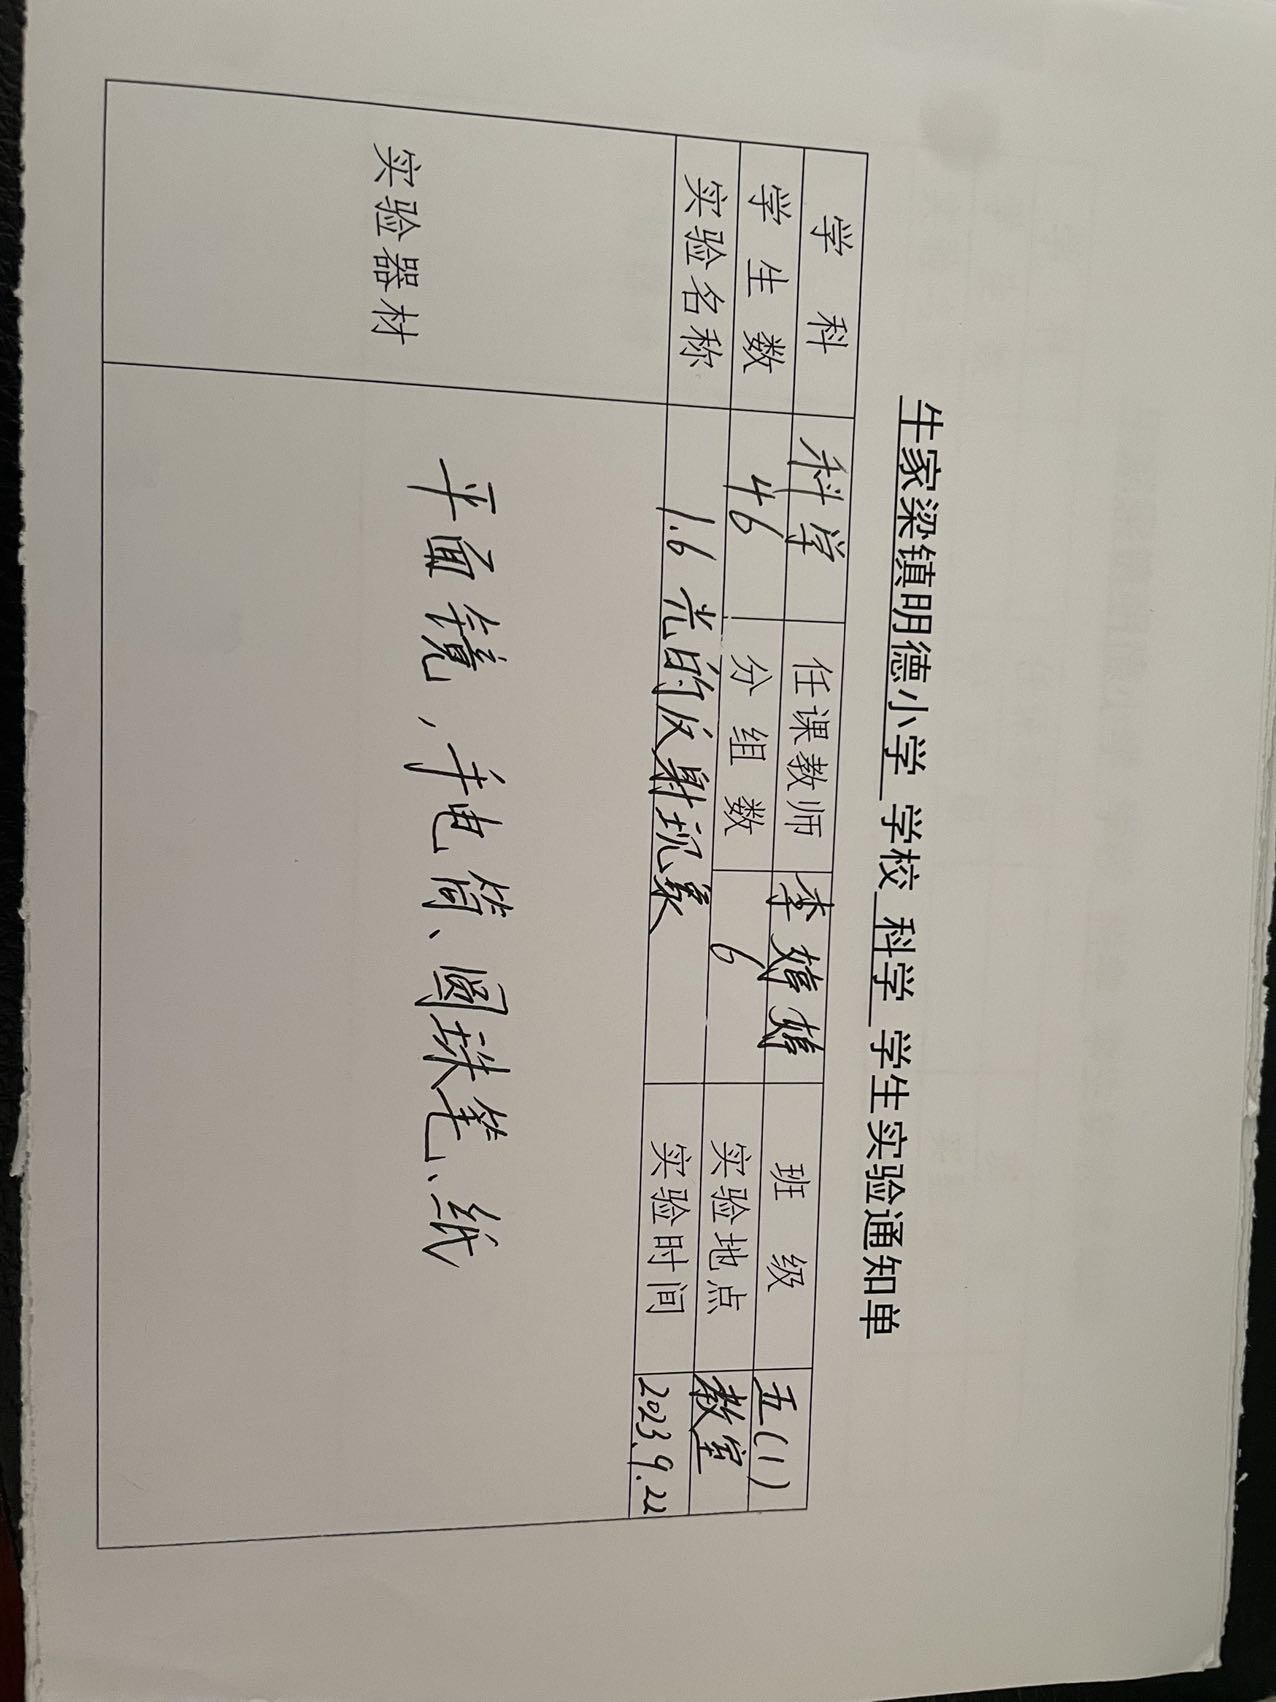 牛家梁镇明德小学 学校 科学 学生实验通知单
学科 科学 任课教师 李婷婷 班级 五(1)
学生数 46 分组数 6 实验地点 教室
实验名称 1.6 光的反射现象 实验时间 2023.9.22
实验器材 平面镜，手电筒、圆珠笔、纸